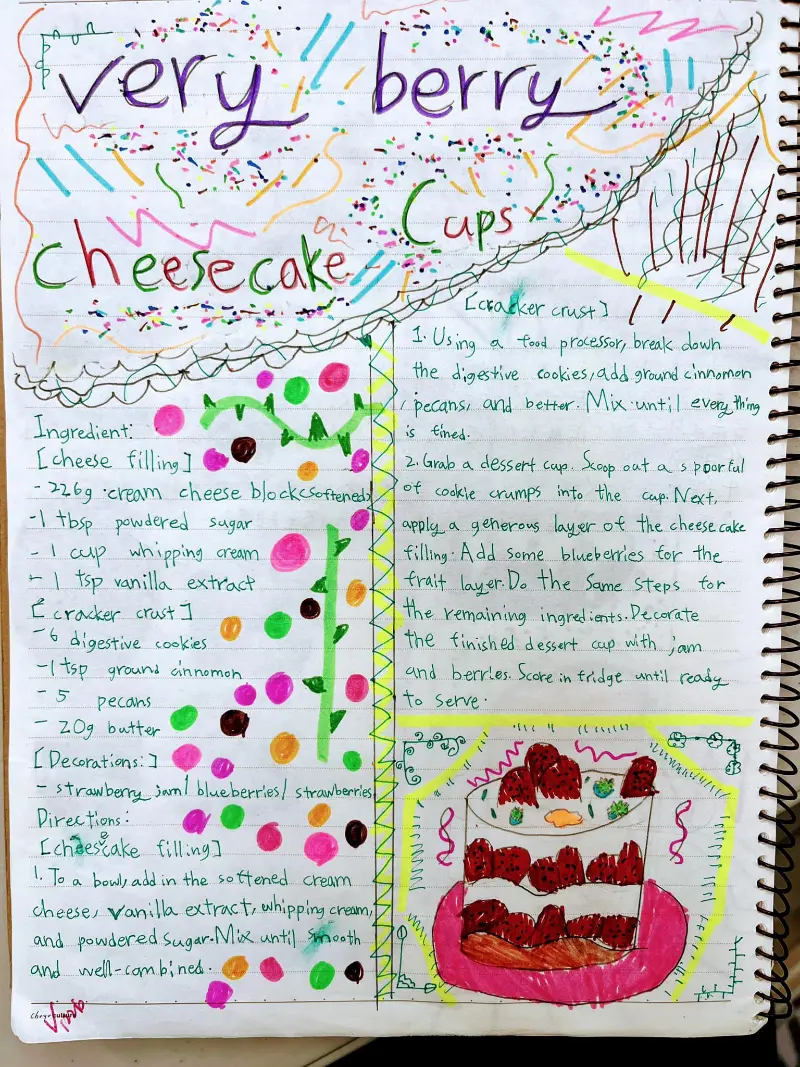 very berry
cheesecake Cups
Ingredient:
[cheese filling]
- 226g cream cheese block(softened)
-1 tbsp powdered sugar
- 1 cup whipping cream
- 1 tsp vanilla extract
[cracker crust]
-6 digestive cookies
-1 tsp ground cinnomon
- 5 pecans
- 20g butter
[Decorations:]
- strawberry jam/ blueberries/ strawberries
Directions:
[cheesecake filling]
1. To a bowl, add in the softened cream
cheese, vanilla extract, whipping cream,
and powdered sugar. Mix until smooth
and well-combined.
[cracker crust]
1. Using a food processor, break down
the digestive cookies, add ground cinnomon
, pecans, and better. Mix until everything
is fined.
2. Grab a dessert cup. Scoop out a spoorful
of cookie crumps into the cup. Next,
apply a generous layer of the cheesecake
filling. Add some blueberries for the
frait layer. Do the same steps for
the remaining ingredients. Decorate
the finished dessert cup with jam
and berries. Score in fridge until ready
to serve.